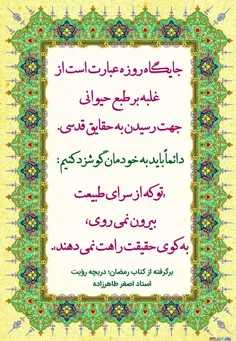 جایگاه روزه عبارت است از
غلبه بر طبع حیوانی
جهت رسیدن به حقایق قدسی.
دائماً باید به خودمان گوشزد کنیم:
،توکه از سرای طبیعت
بیرون نمی روی،
به کوی حقیقت راهت نمی دهند،.
برگرفته از کتاب رمضان؛ دریچه رؤیت
استاد اصغر طاهرزاده